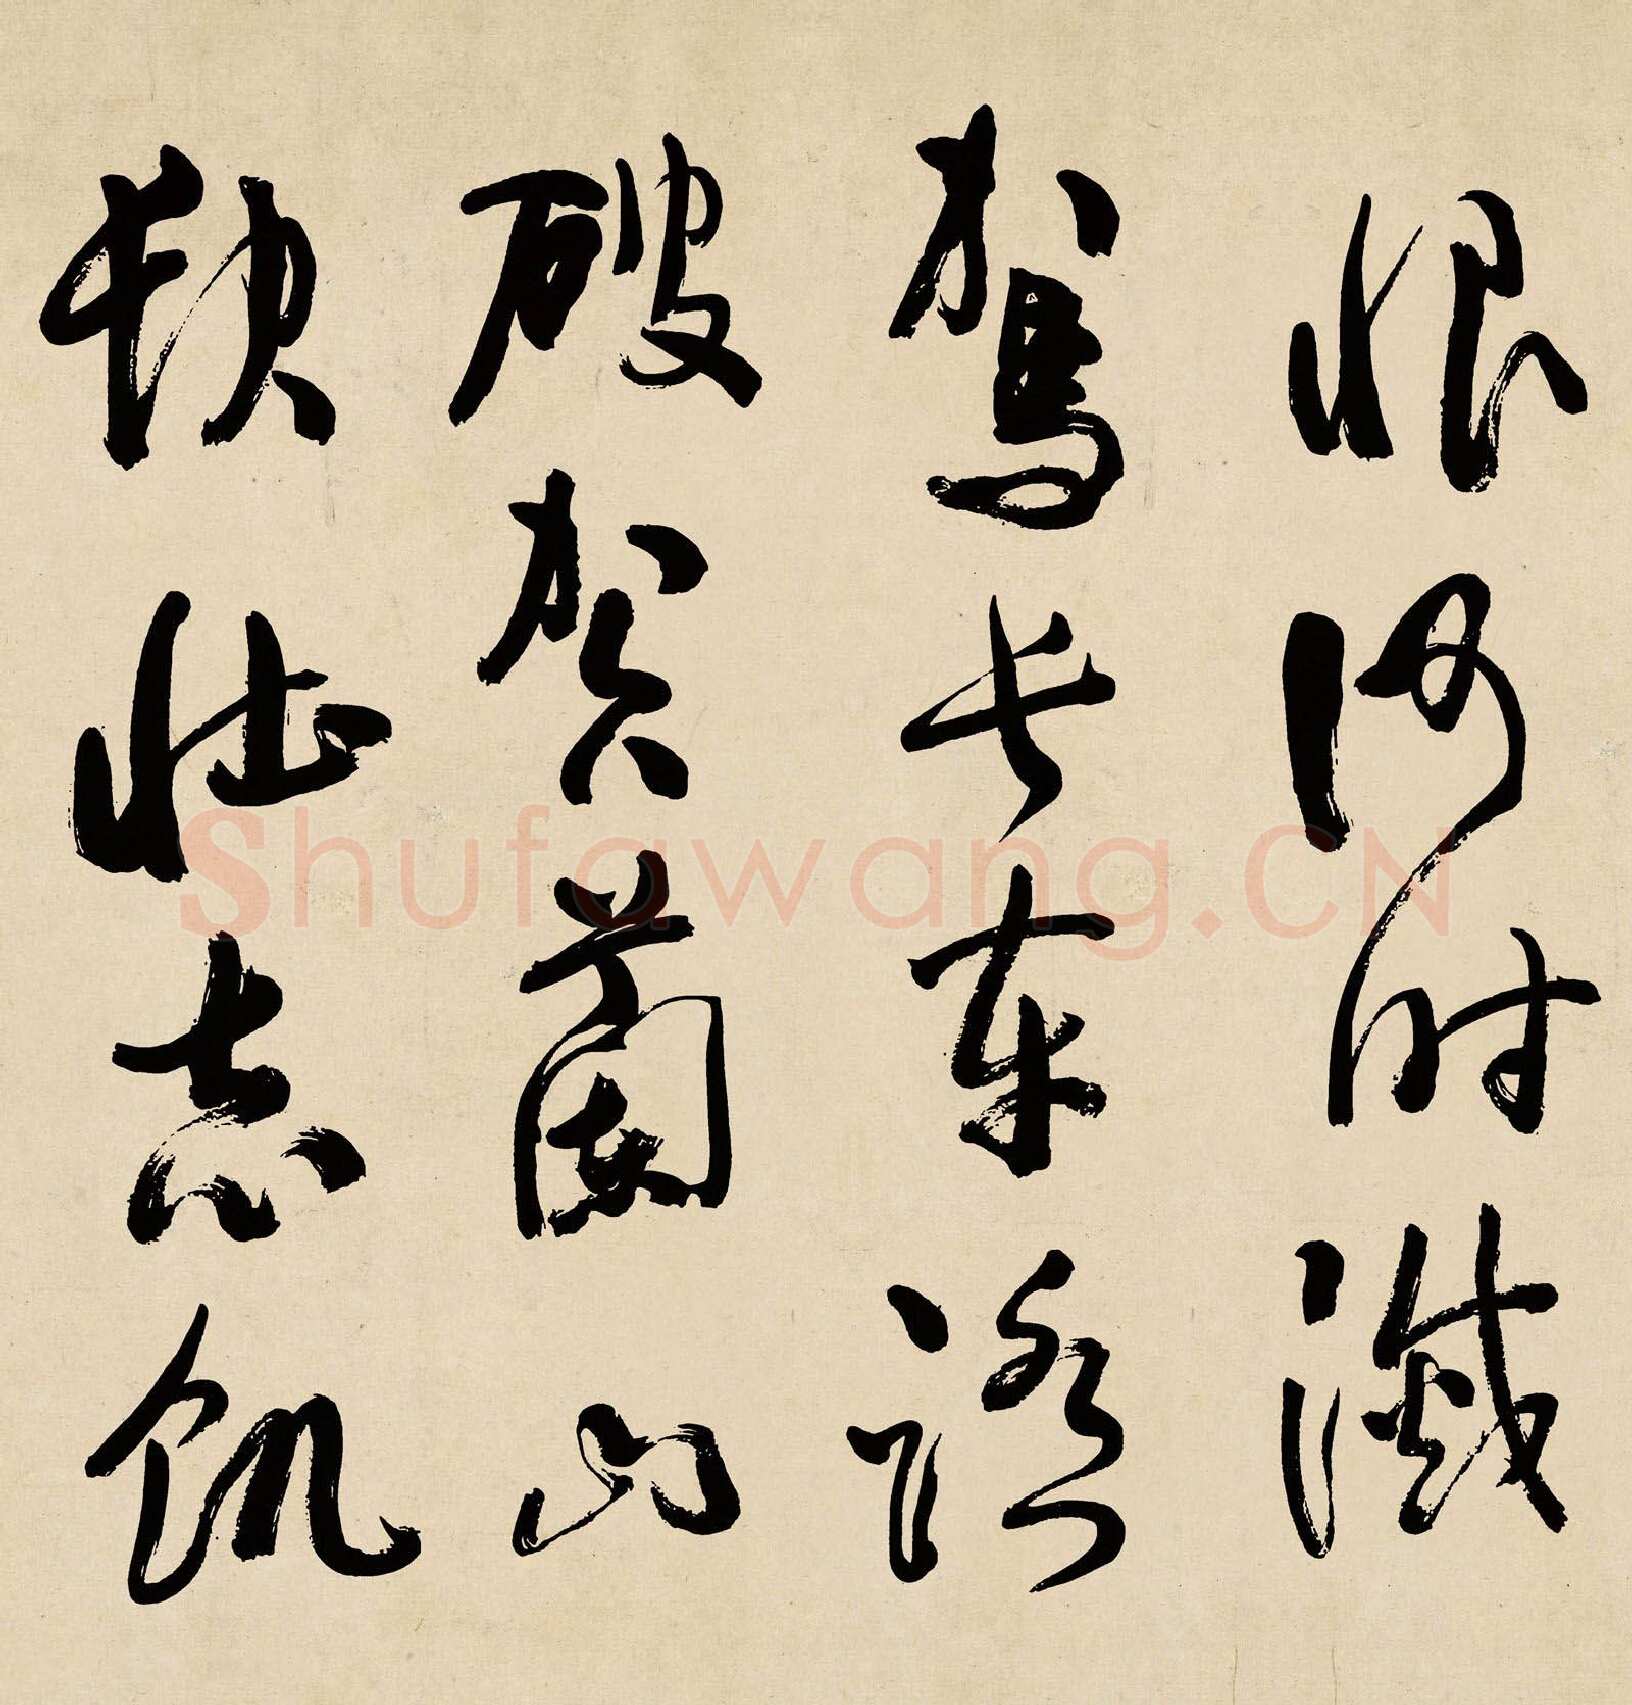 恨何时灭
驾长车踏
破贺兰山
缺壮志饥
Shufawang.CN